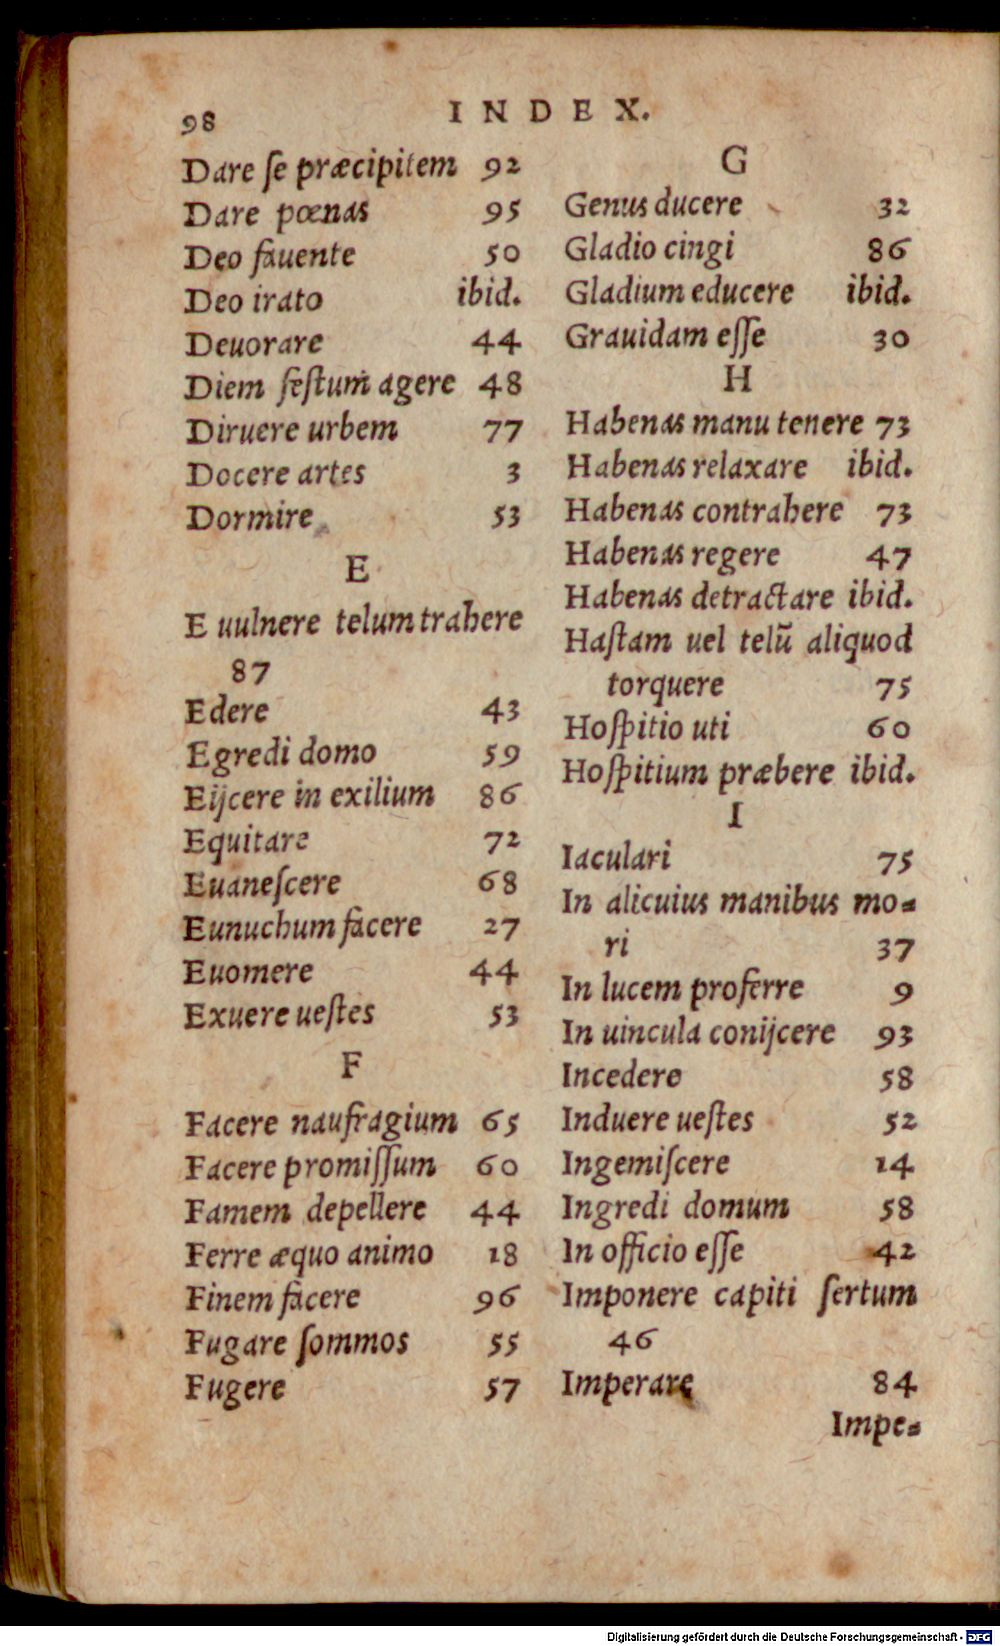 98
INDEX.
Dare ſe præcipitem 92
Dare pœnas 95
Deo fauente 50
Deo irato ibid.
Deuorare 44
Diem feſtum agere 48
Diruere urbem 77
Docere artes 3
Dormire 53
E
E uulnere telum trahere
87
Edere 43
Egredi domo 59
Eijcere in exilium 86
Equitare 72
Euaneſcere 68
Eunuchum facere 27
Euomere 44
Exuere ueſtes 53
F
Facere naufragium 65
Facere promiſſum 60
Famem depellere 44
Ferre æquo animo 18
Finem facere 96
Fugare ſommos 55
Fugere 57
G
Genus ducere 32
Gladio cingi 86
Gladium educere ibid.
Grauidam eſſe 30
H
Habenas manu tenere 73
Habenas relaxare ibid.
Habenas contrahere 73
Habenas regere 47
Habenas detractare ibid.
Haſtam uel telũ aliquod
torquere 75
Hoſpitio uti 60
Hoſpitium præbere ibid.
I
Iaculari 75
In alicuius manibus mo⸗
ri 37
In lucem proferre 9
In uincula conijcere 93
Incedere 58
Induere ueſtes 52
Ingemiſcere 14
Ingredi domum 58
In officio eſſe 42
Imponere capiti ſertum
46
Imperare 84
Impe⸗
Digitalisierung gefördert durch die Deutsche Forschungsgemeinschaft - DFG